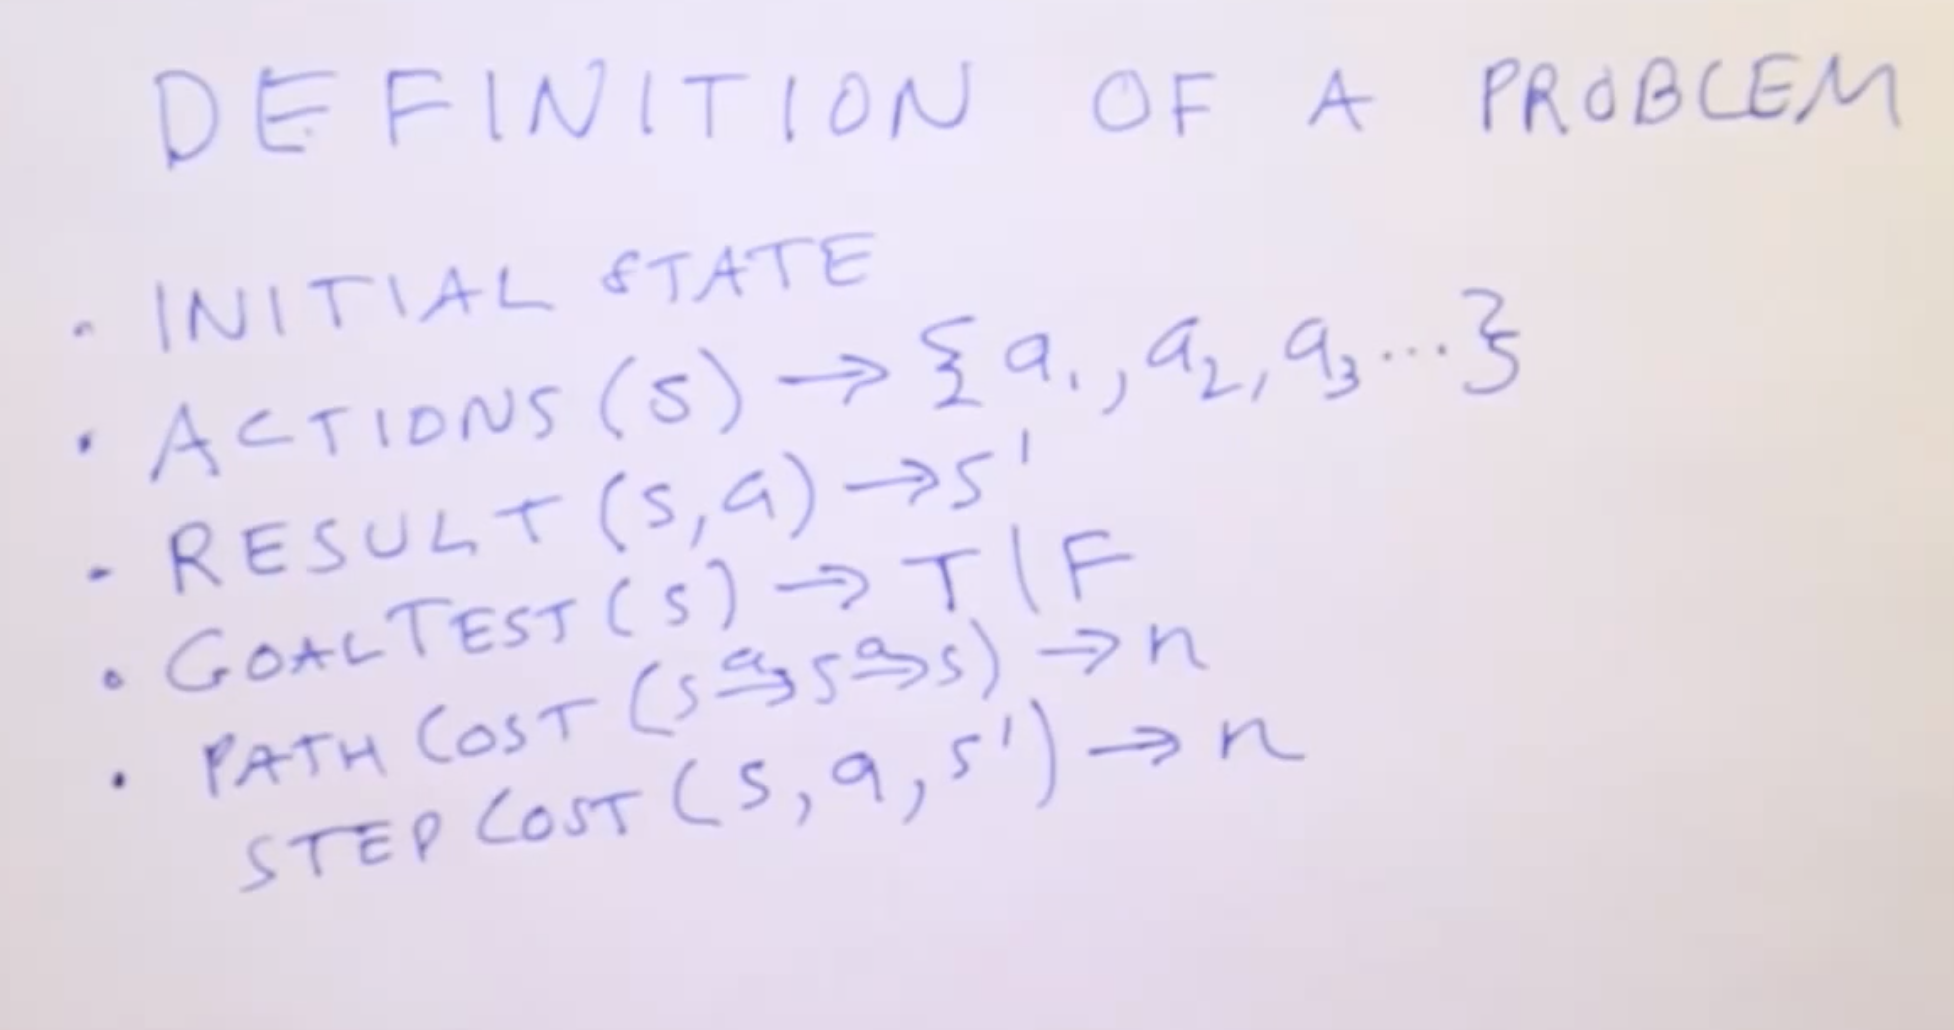 DEFINITION OF A PROBLEM
• INITIAL STATE
• ACTIONS (s) → {a₁, a₂, a₃ ...}
• RESULT (s, a) → s'
• GOALTEST (s) → T | F
• PATH COST (s →ᵃ s →ᵃ s) → n
STEP COST (s, a, s') → n